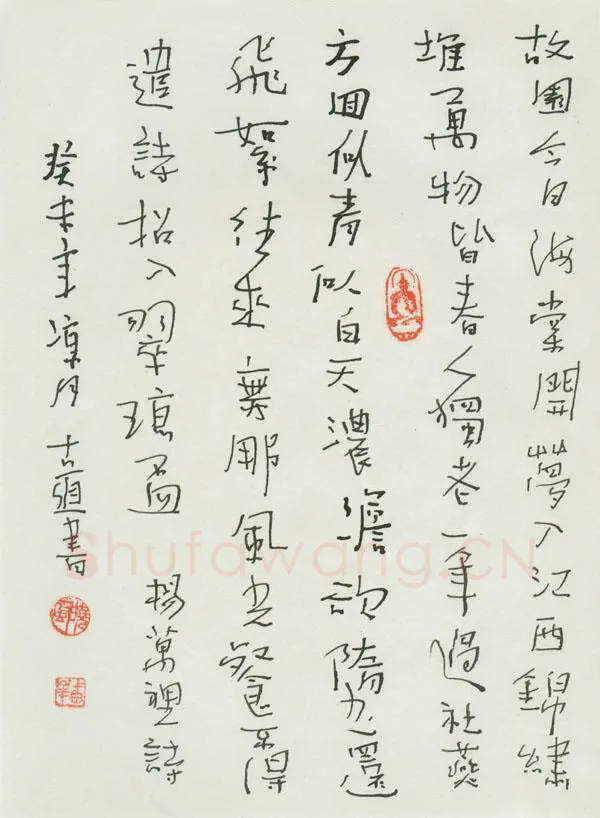 故園今日海棠開夢入江西錦繡
堆萬物皆春人獨老一年過社燕
方回似青似白天濃澹欲墮還
飛絮往來無那風光餐不得
遣詩招入翠瓊盃 楊萬裡詩
癸未年涼月古道書
Shufawang.CN